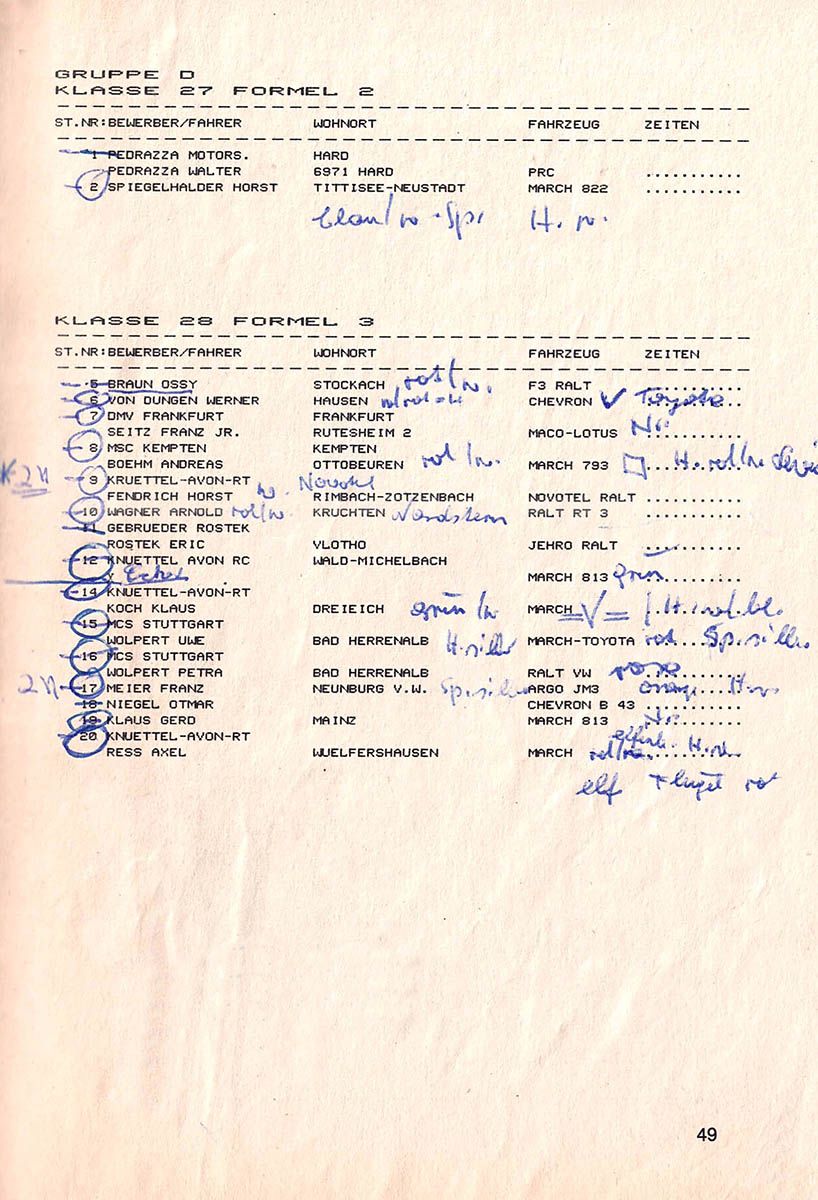 GRUPPE D
KLASSE 27 FORMEL 2
ST.NR:BEWERBER/FAHRER WOHNORT FAHRZEUG ZEITEN
1 PEDRAZZA MOTORS. HARD
PEDRAZZA WALTER 6971 HARD PRC ...........
2 SPIEGELHALDER HORST TITTISEE-NEUSTADT MARCH 822 ...........
KLASSE 28 FORMEL 3
ST.NR:BEWERBER/FAHRER WOHNORT FAHRZEUG ZEITEN
5 BRAUN OSSY STOCKACH rot/w. F3 RALT ...........
6 VON DUNGEN WERNER HAUSEN CHEVRON Toyota
7 DMV FRANKFURT FRANKFURT
SEITZ FRANZ JR. RUTESHEIM 2 MACO-LOTUS ...........
8 MSC KEMPTEN KEMPTEN
BOEHM ANDREAS OTTOBEUREN rot/w. MARCH 793
9 KRUETTEL-AVON-RT w. Novotel
FENDRICH HORST RIMBACH-ZOTZENBACH NOVOTEL RALT ...........
10 WAGNER ARNOLD rot/w. KRUCHTEN Nordstern RALT RT 3 ...........
11 GEBRUEDER ROSTEK
ROSTEK ERIC VLOTHO JEHRO RALT ...........
12 KNUETTEL AVON RC WALD-MICHELBACH
Y MARCH 813 grün
14 KNUETTEL-AVON-RT
KOCH KLAUS DREIEICH grün/w MARCH
15 MCS STUTTGART
WOLPERT UWE BAD HERRENALB MARCH-TOYOTA rot
16 MCS STUTTGART
WOLPERT PETRA BAD HERRENALB RALT VW rosa
17 MEIER FRANZ NEUNBURG V.W. ARGO JM3 orange
18 NIEGEL OTMAR CHEVRON B 43 ...........
19 KLAUS GERD MAINZ MARCH 813
20 KNUETTEL-AVON-RT
RESS AXEL WUELFERSHAUSEN MARCH
elf Flügel rot
49